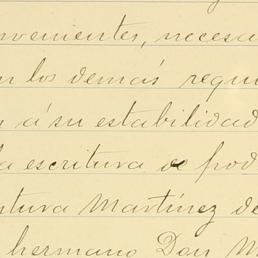 nvenientes, necesa
n los demás requi
n á su estabilidad
la escritura de pod
ntura Martínez de
hermano Don M